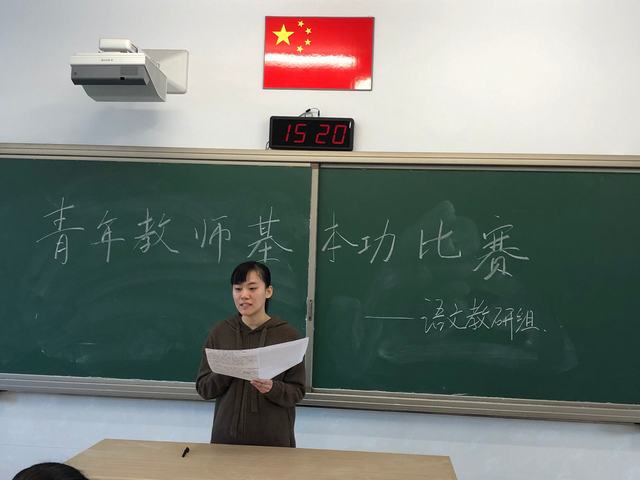 SONY
15 20
青年教师基本功比赛
——语文教研组.